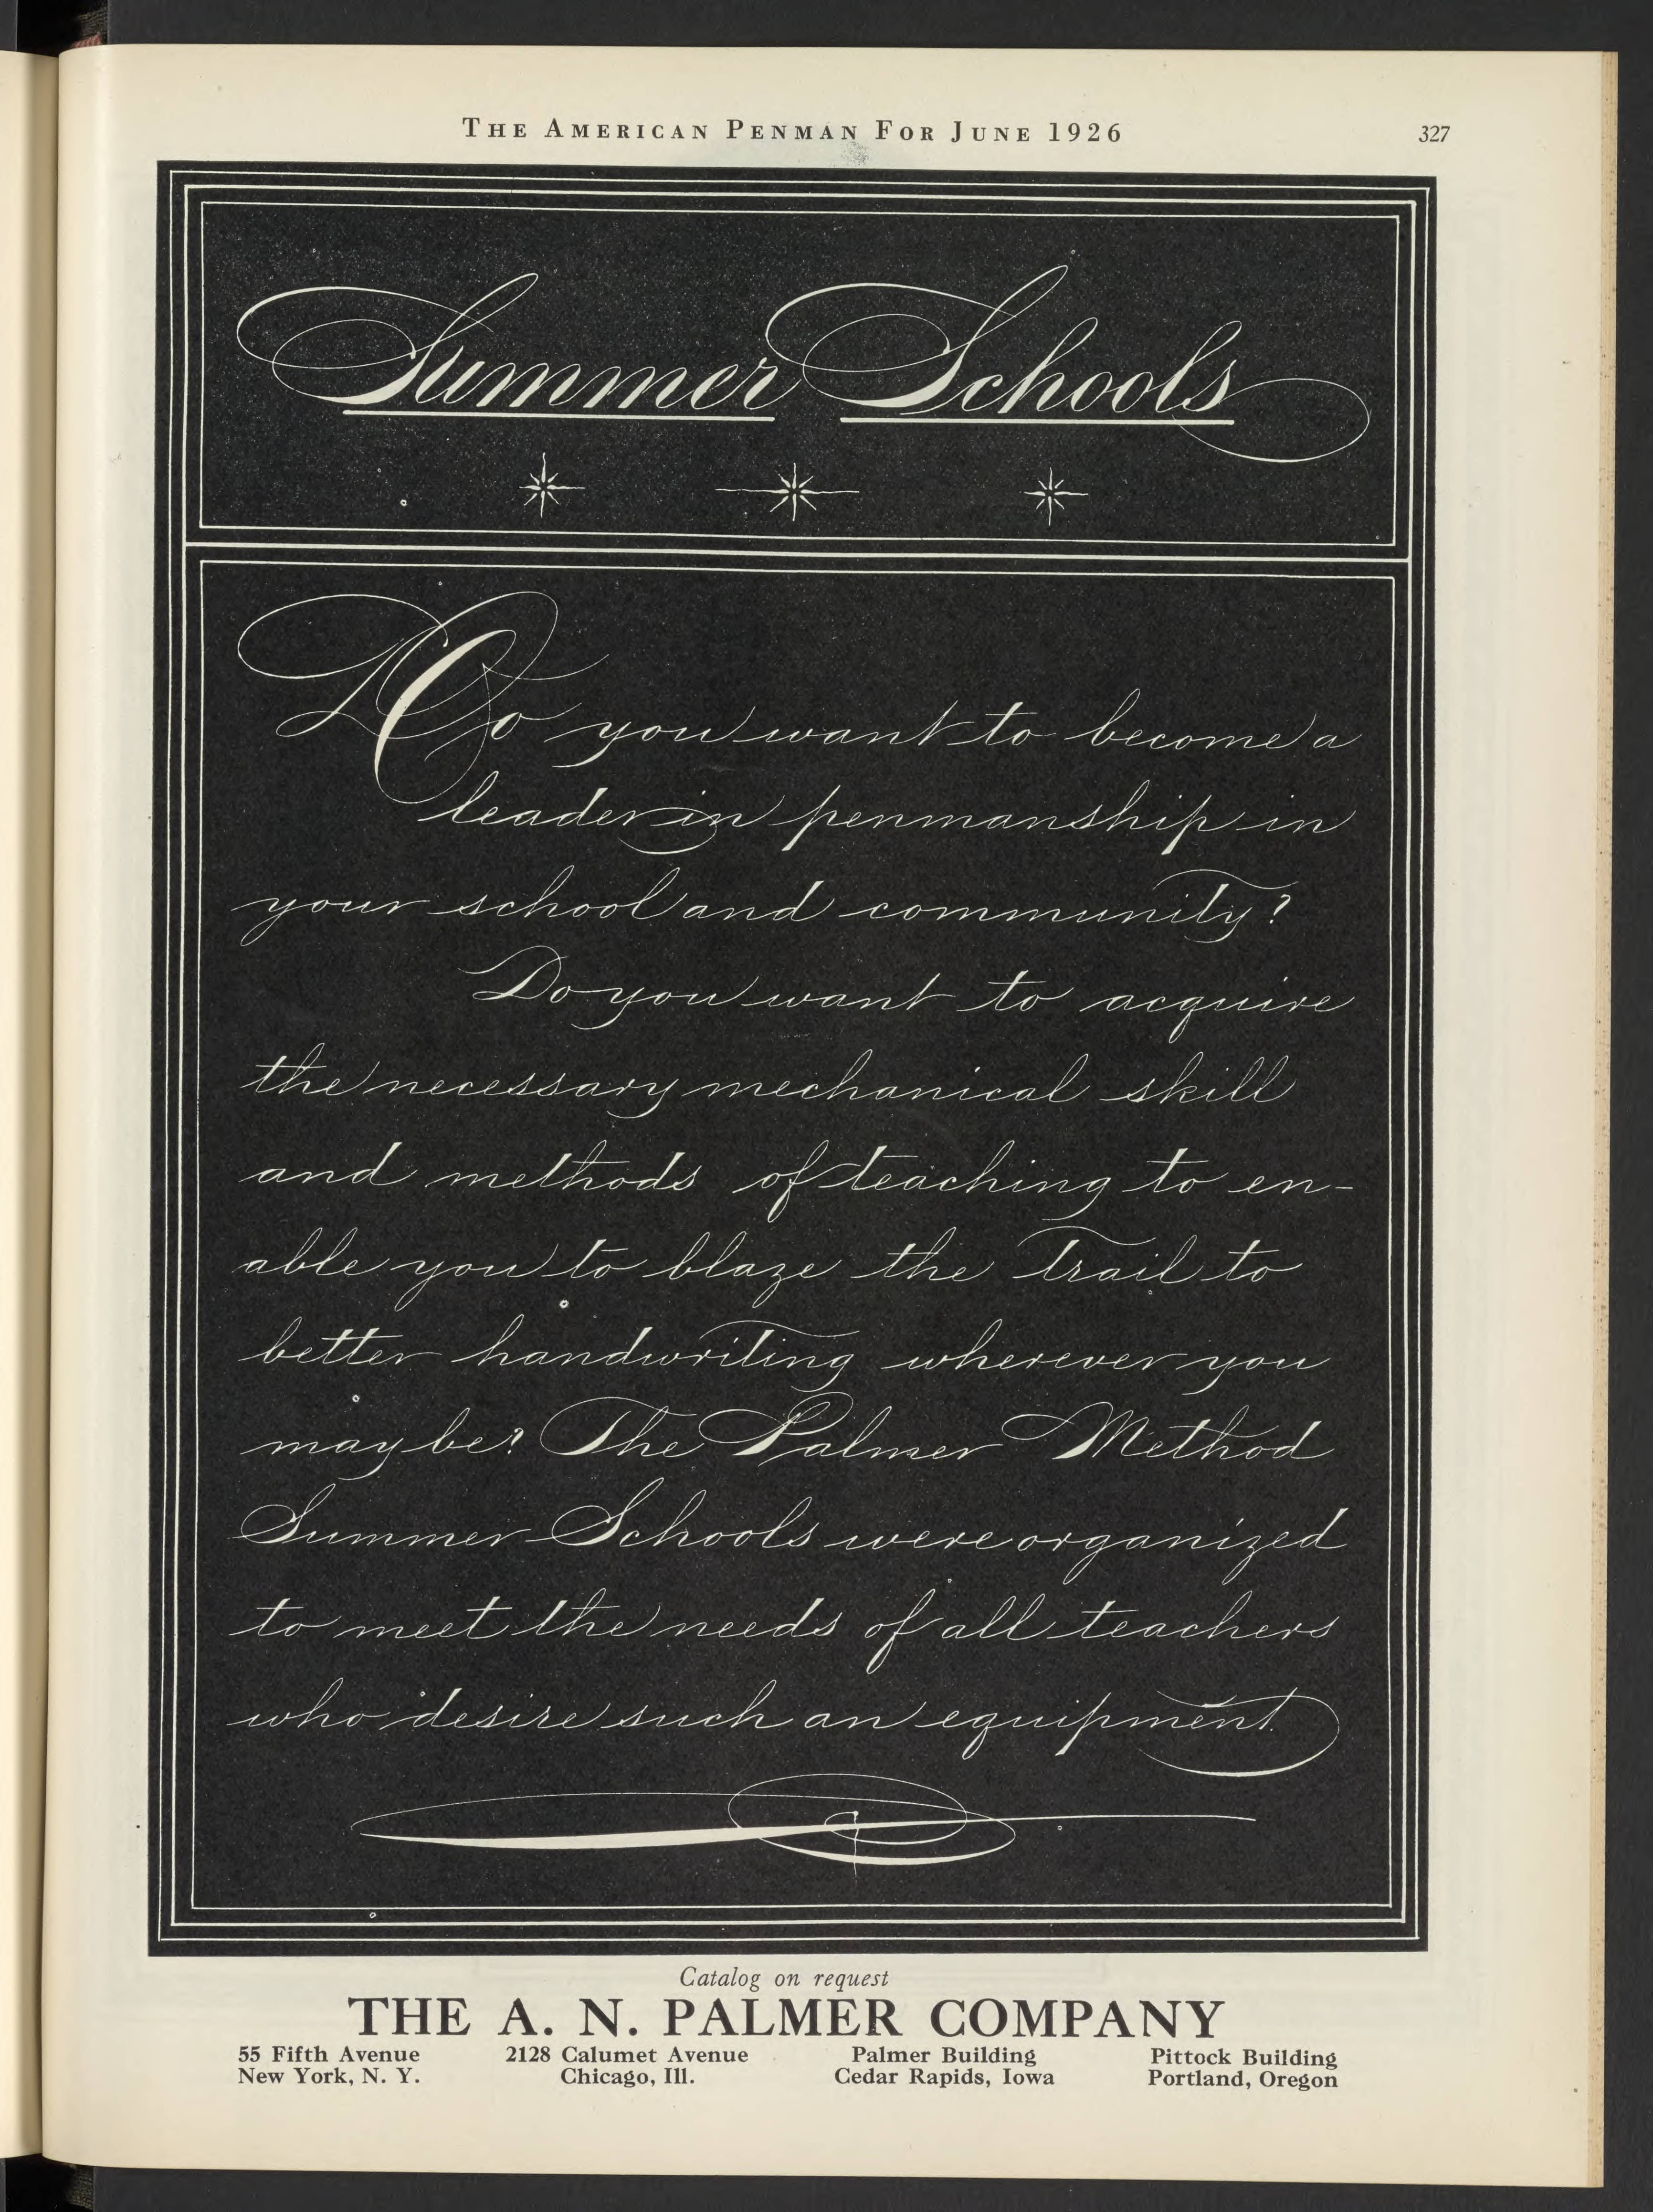 THE AMERICAN PENMAN FOR JUNE 1926 327
Summer Schools
Do you want to become a
leader in penmanship in
your school and community?
Do you want to acquire
the necessary mechanical skill
and methods of teaching to en-
able you to blaze the trail to
better handwriting wherever you
may be? The Palmer Method
Summer Schools were organized
to meet the needs of all teachers
who desire such an equipment.
Catalog on request
THE A. N. PALMER COMPANY
55 Fifth Avenue 2128 Calumet Avenue Palmer Building Pittock Building
New York, N. Y. Chicago, Ill. Cedar Rapids, Iowa Portland, Oregon